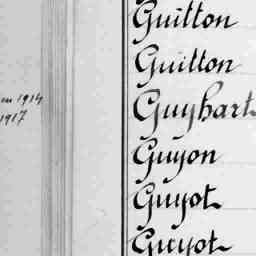 Guitton
Guitton
en 1914
Guyhart
1917
Guyon
Guyot
Guyot